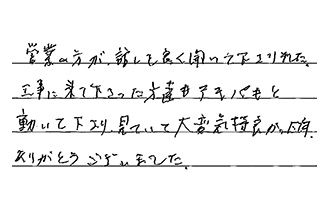 営業の方が、話しも良く聞いて下さりました。
工事に来て下さった方達もテキパキと
動いて下さり、見ていて大変気持良かったです。
ありがとうございました。